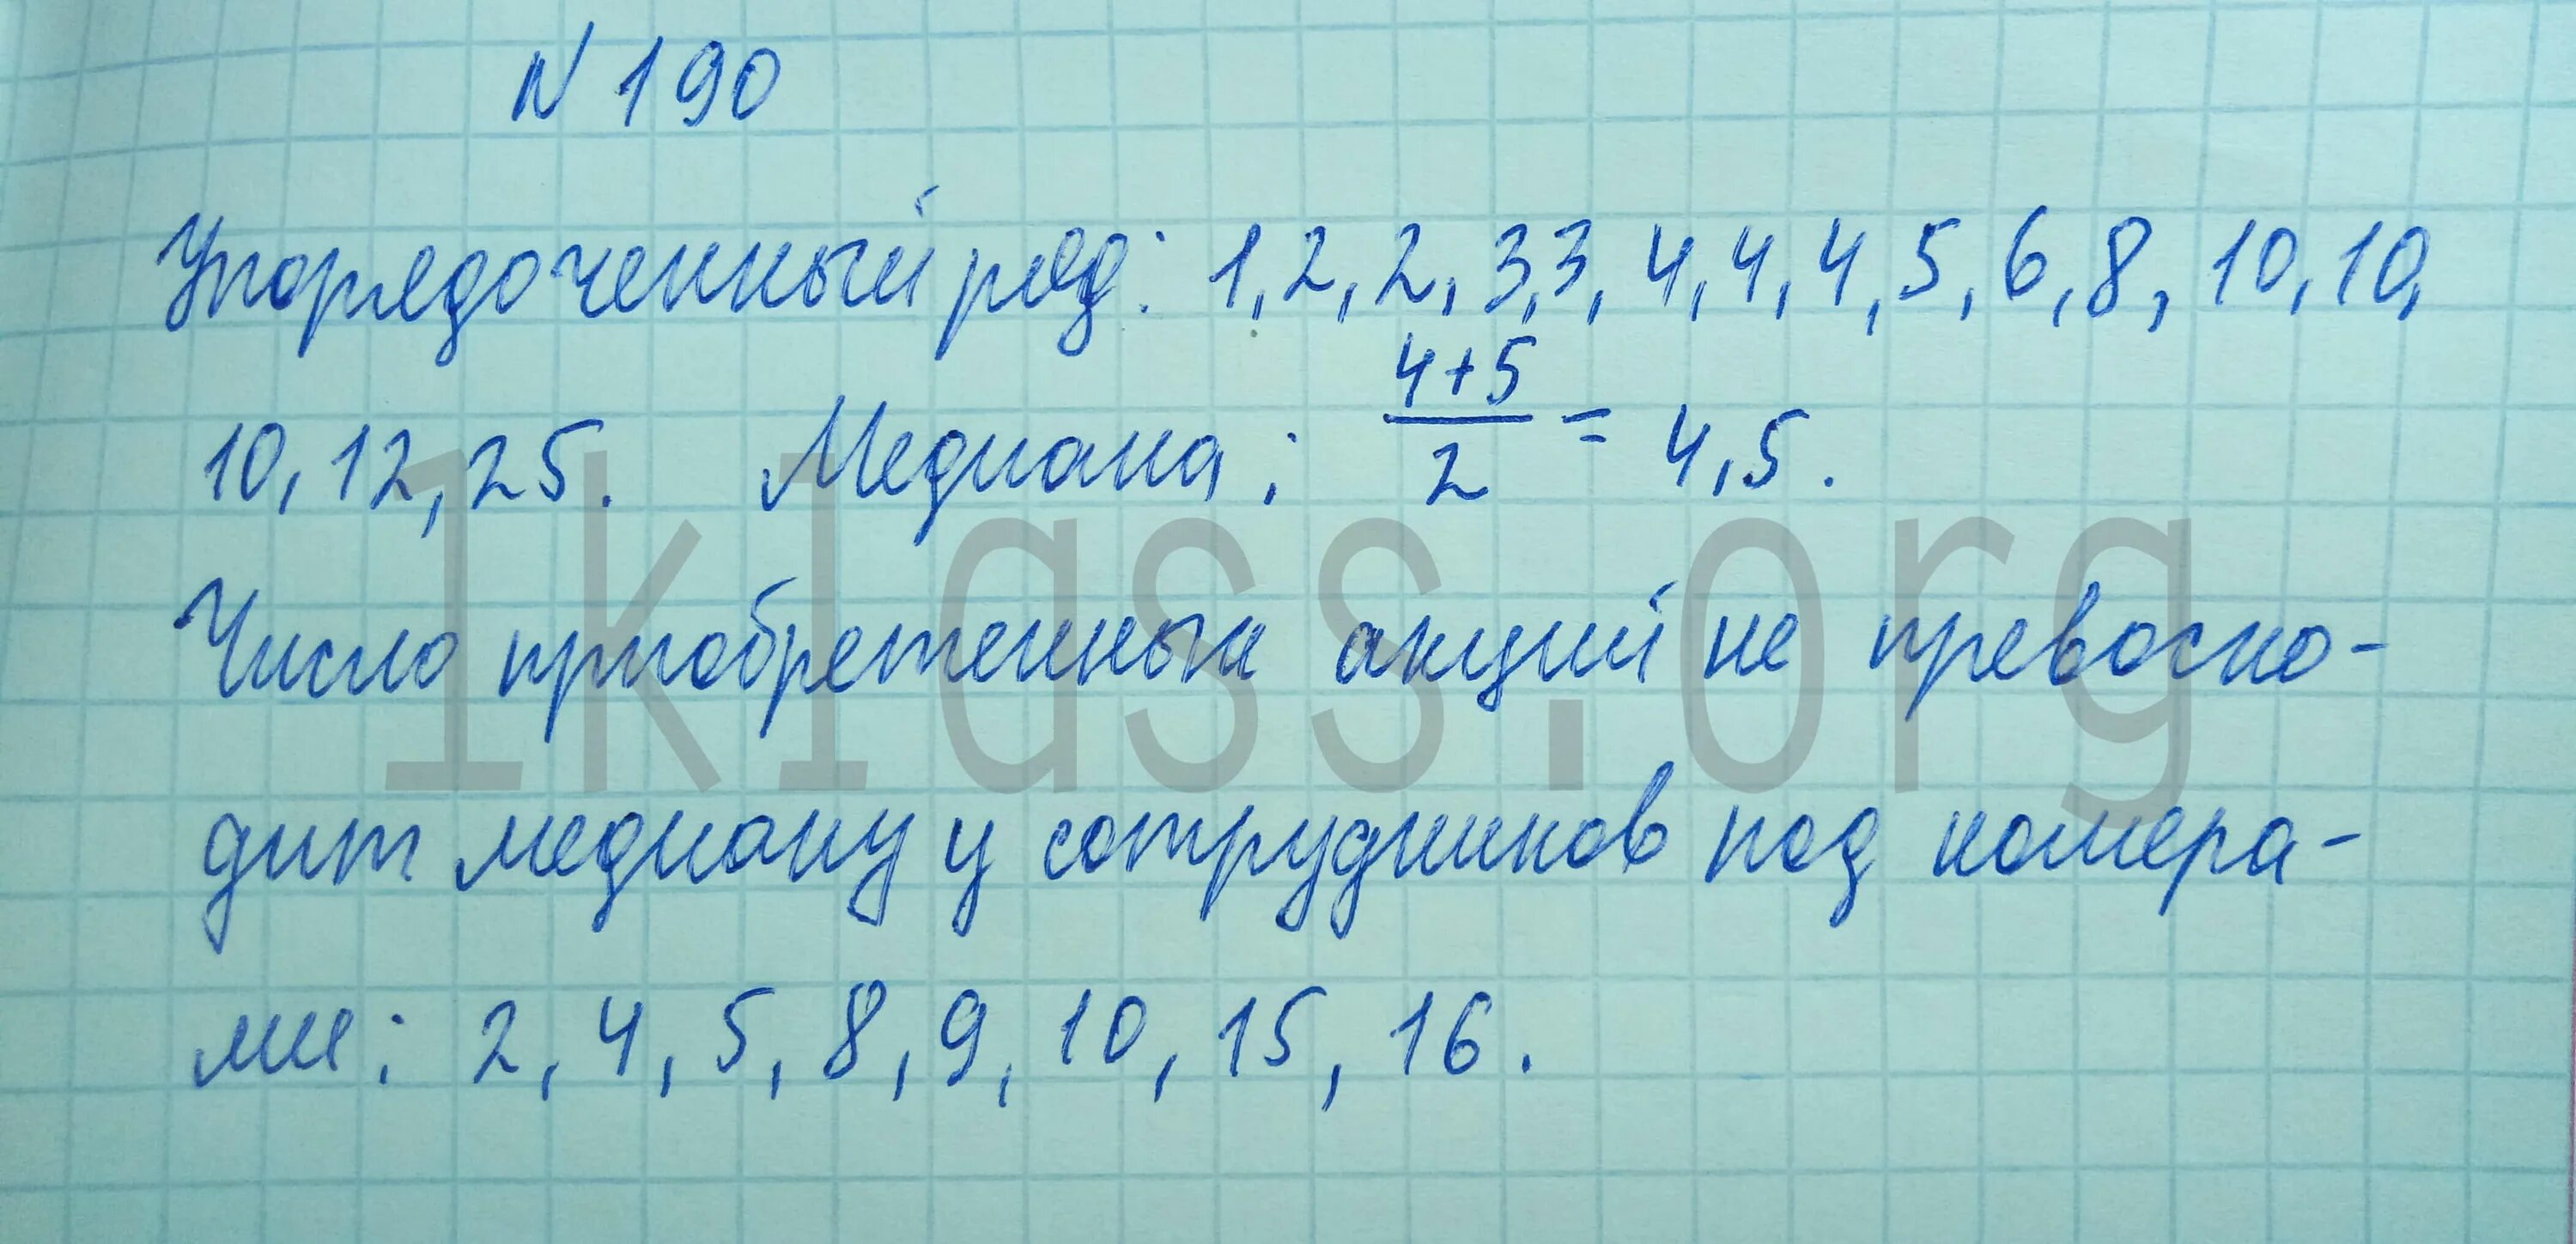 N 190
Упорядоченный ряд: 1, 2, 2, 3, 3, 4, 4, 4, 5, 6, 8, 10, 10,
10, 12, 25. Медиана: \frac{4+5}{2} = 4,5.
Число приобретенных акций не превосхо-
дит медиану у сотрудников под номера-
ми: 2, 4, 5, 8, 9, 10, 15, 16.
lklass.org